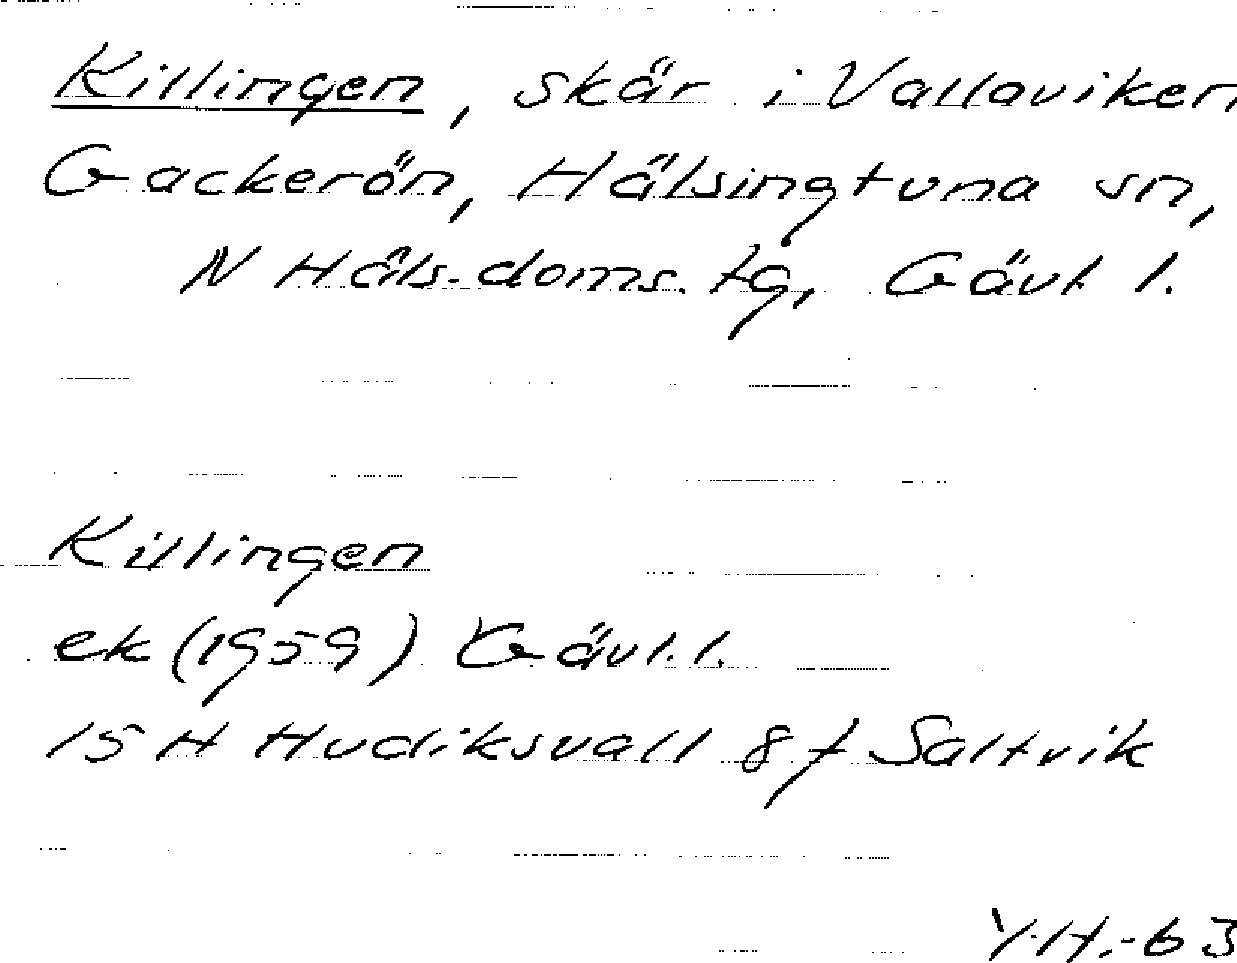 Killingen, skär i Vallaviken
Gackerön, Hälsingtuna sn,
N Häls. doms. tg, Gävl. l.
Killingen
ek (1959) Gävl. l.
15 H Hudiksvall 8 f Saltvik
Y.H.-63